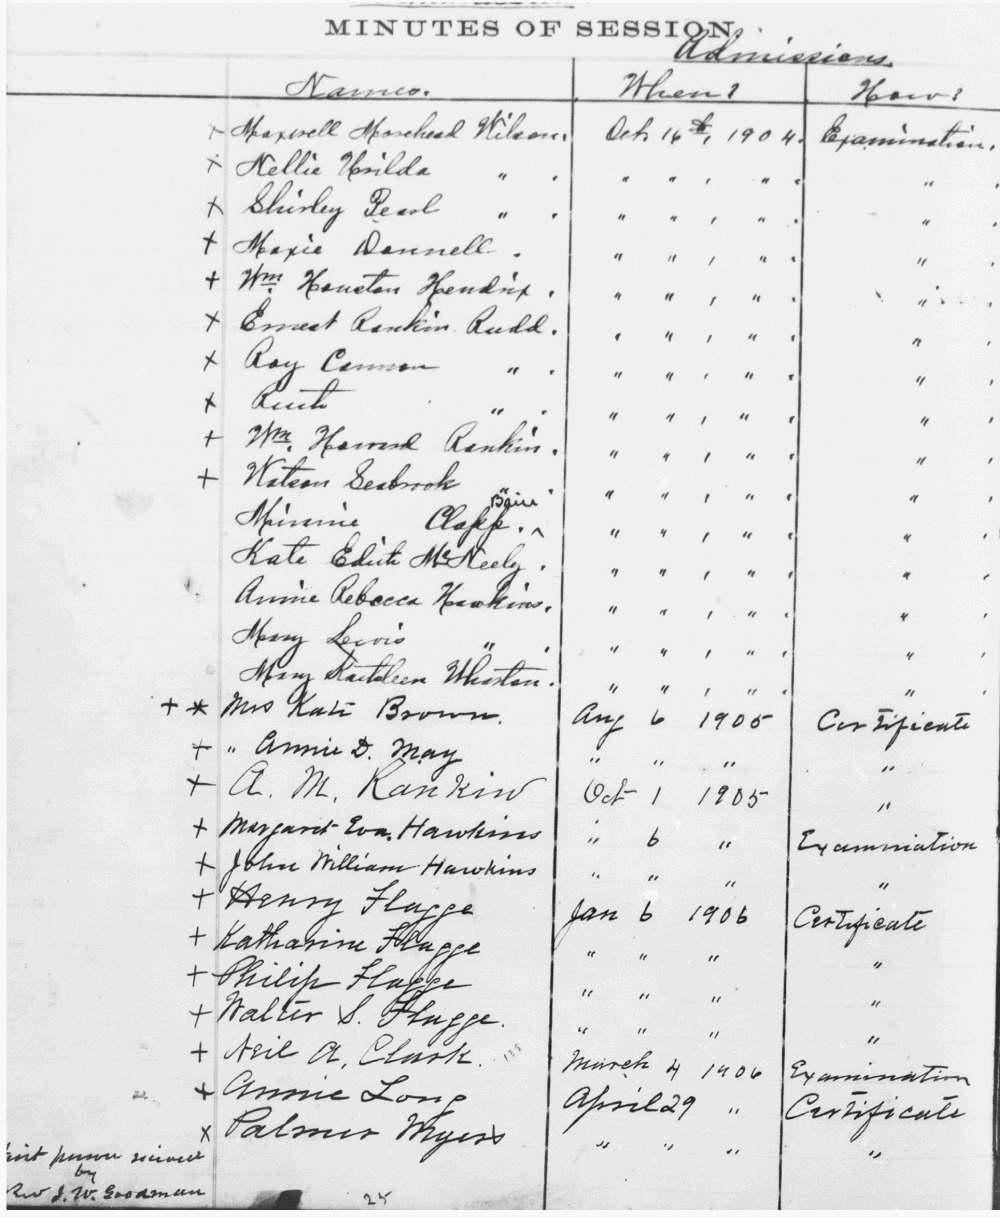 MINUTES OF SESSION
Admissions.
Names. When? How?
× Maxwell Morehead Wilson. Oct 16th, 1904. Examination.
× Nellie Urilda " . " " , " . " .
× Shirley Pearl " . " " , " . " .
+ Maxie Donnell . " " , " . " .
+ Wm. Houston Hendrix . " " , " . " .
× Ernest Rankin Rudd. " " , " . " .
× Roy Cannon " . " " , " . " .
× Ruth " . " " , " . " .
+ Wm. Howard Rankin. " " , " . " .
+ Watson Seabrook " . " " , " . " .
Minnie Clapp. ^ " " , " . " .
Kate Edith McNeely . " " , " . " .
Annie Rebecca Hawkins. " " , " . " .
Mary Lewis " . " " , " . " .
Mary Kathleen Wharton. " " , " . " .
+ * Mrs Kate Brown. Aug 6 1905 Certificate
+ " Annie D. May " " " "
+ A. M. Rankin Oct 1 1905 "
+ Margaret Eva Hawkins " 6 " Examination
+ John William Hawkins " " " "
+ Henry Flagge Jan 6 1906 Certificate
+ Katharine Flugge " " " "
+ Philip Flugge " " " "
+ Walter S. Flugge. " " " "
+ Neil A. Clark. March 4 1906 Examination
× Annie Long April 29 " Certificate
× Palmer Myers " " " "
person received
by
Rev J. W. Goodman
25